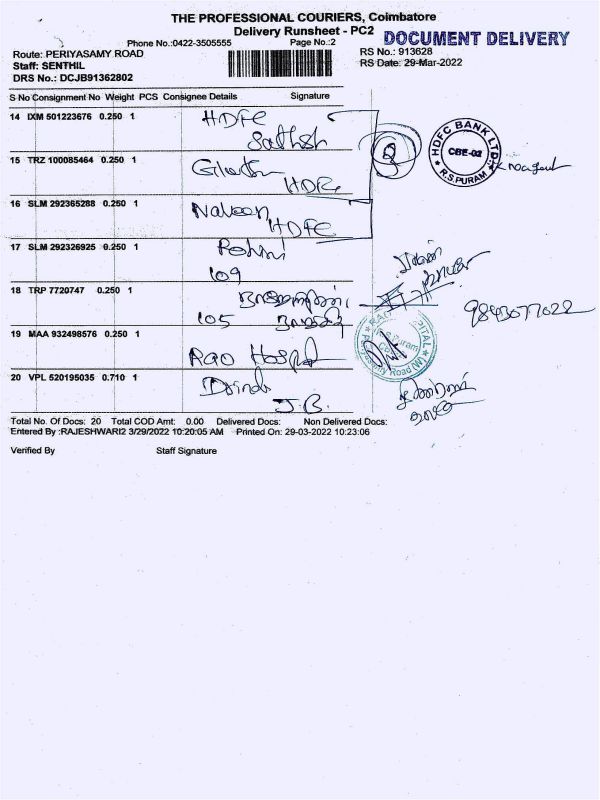 THE PROFESSIONAL COURIERS, Coimbatore
Delivery Runsheet - PC2
DOCUMENT DELIVERY
Phone No.:0422-3505555
Page No.:2
Route: PERIYASAMY ROAD
RS No.: 913628
Staff: SENTHIL
RS Date: 29-Mar-2022
DRS No.: DCJB91362802
S No Consignment No Weight PCS Consignee Details Signature
14 IXM 501223676 0.250 1 HDFC
Sathish
HDFC BANK LTD.
CBE-02
R.S.PURAM
15 TRZ 100085464 0.250 1
HDFC
16 SLM 292365288 0.250 1 Naveen
HDFC
17 SLM 292326925 0.250 1 Rohini
109
18 TRP 7720747 0.250 1
105
9843077022
19 MAA 932498576 0.250 1
Rao Hospital
RAO HOSPITAL
R.S.Puram
Periyasamy Road (W)
20 VPL 520195035 0.710 1
J.B.
Total No. Of Docs: 20 Total COD Amt: 0.00 Delivered Docs: Non Delivered Docs:
Entered By :RAJESHWARI2 3/29/2022 10:20:05 AM Printed On: 29-03-2022 10:23:06
Verified By
Staff Signature